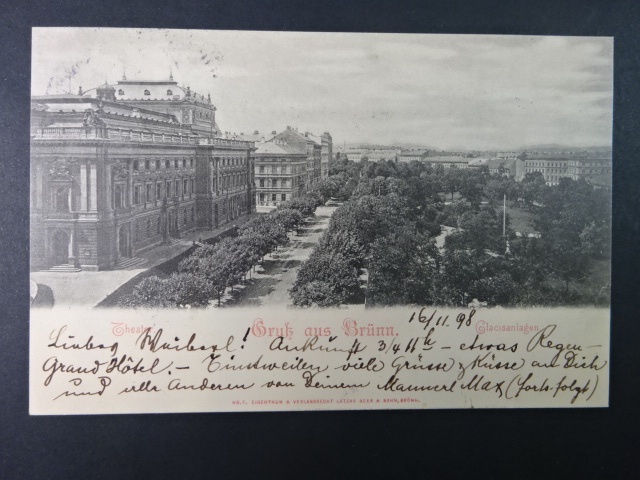 16/11 98
Theater. Gruß aus Brünn. Glacisanlagen.
Liebes Weiberl! Ankunft 3/4 11h – etwas Regen –
Grand Hôtel. – Einstweilen viele Grüsse & Küsse an Dich
und alle Anderen von Deinem Mannerl Max (forts. folgt)
EIGENTHUM & VERLAGSRECHT ASCHER BEER & SOHN, BRÜNN.